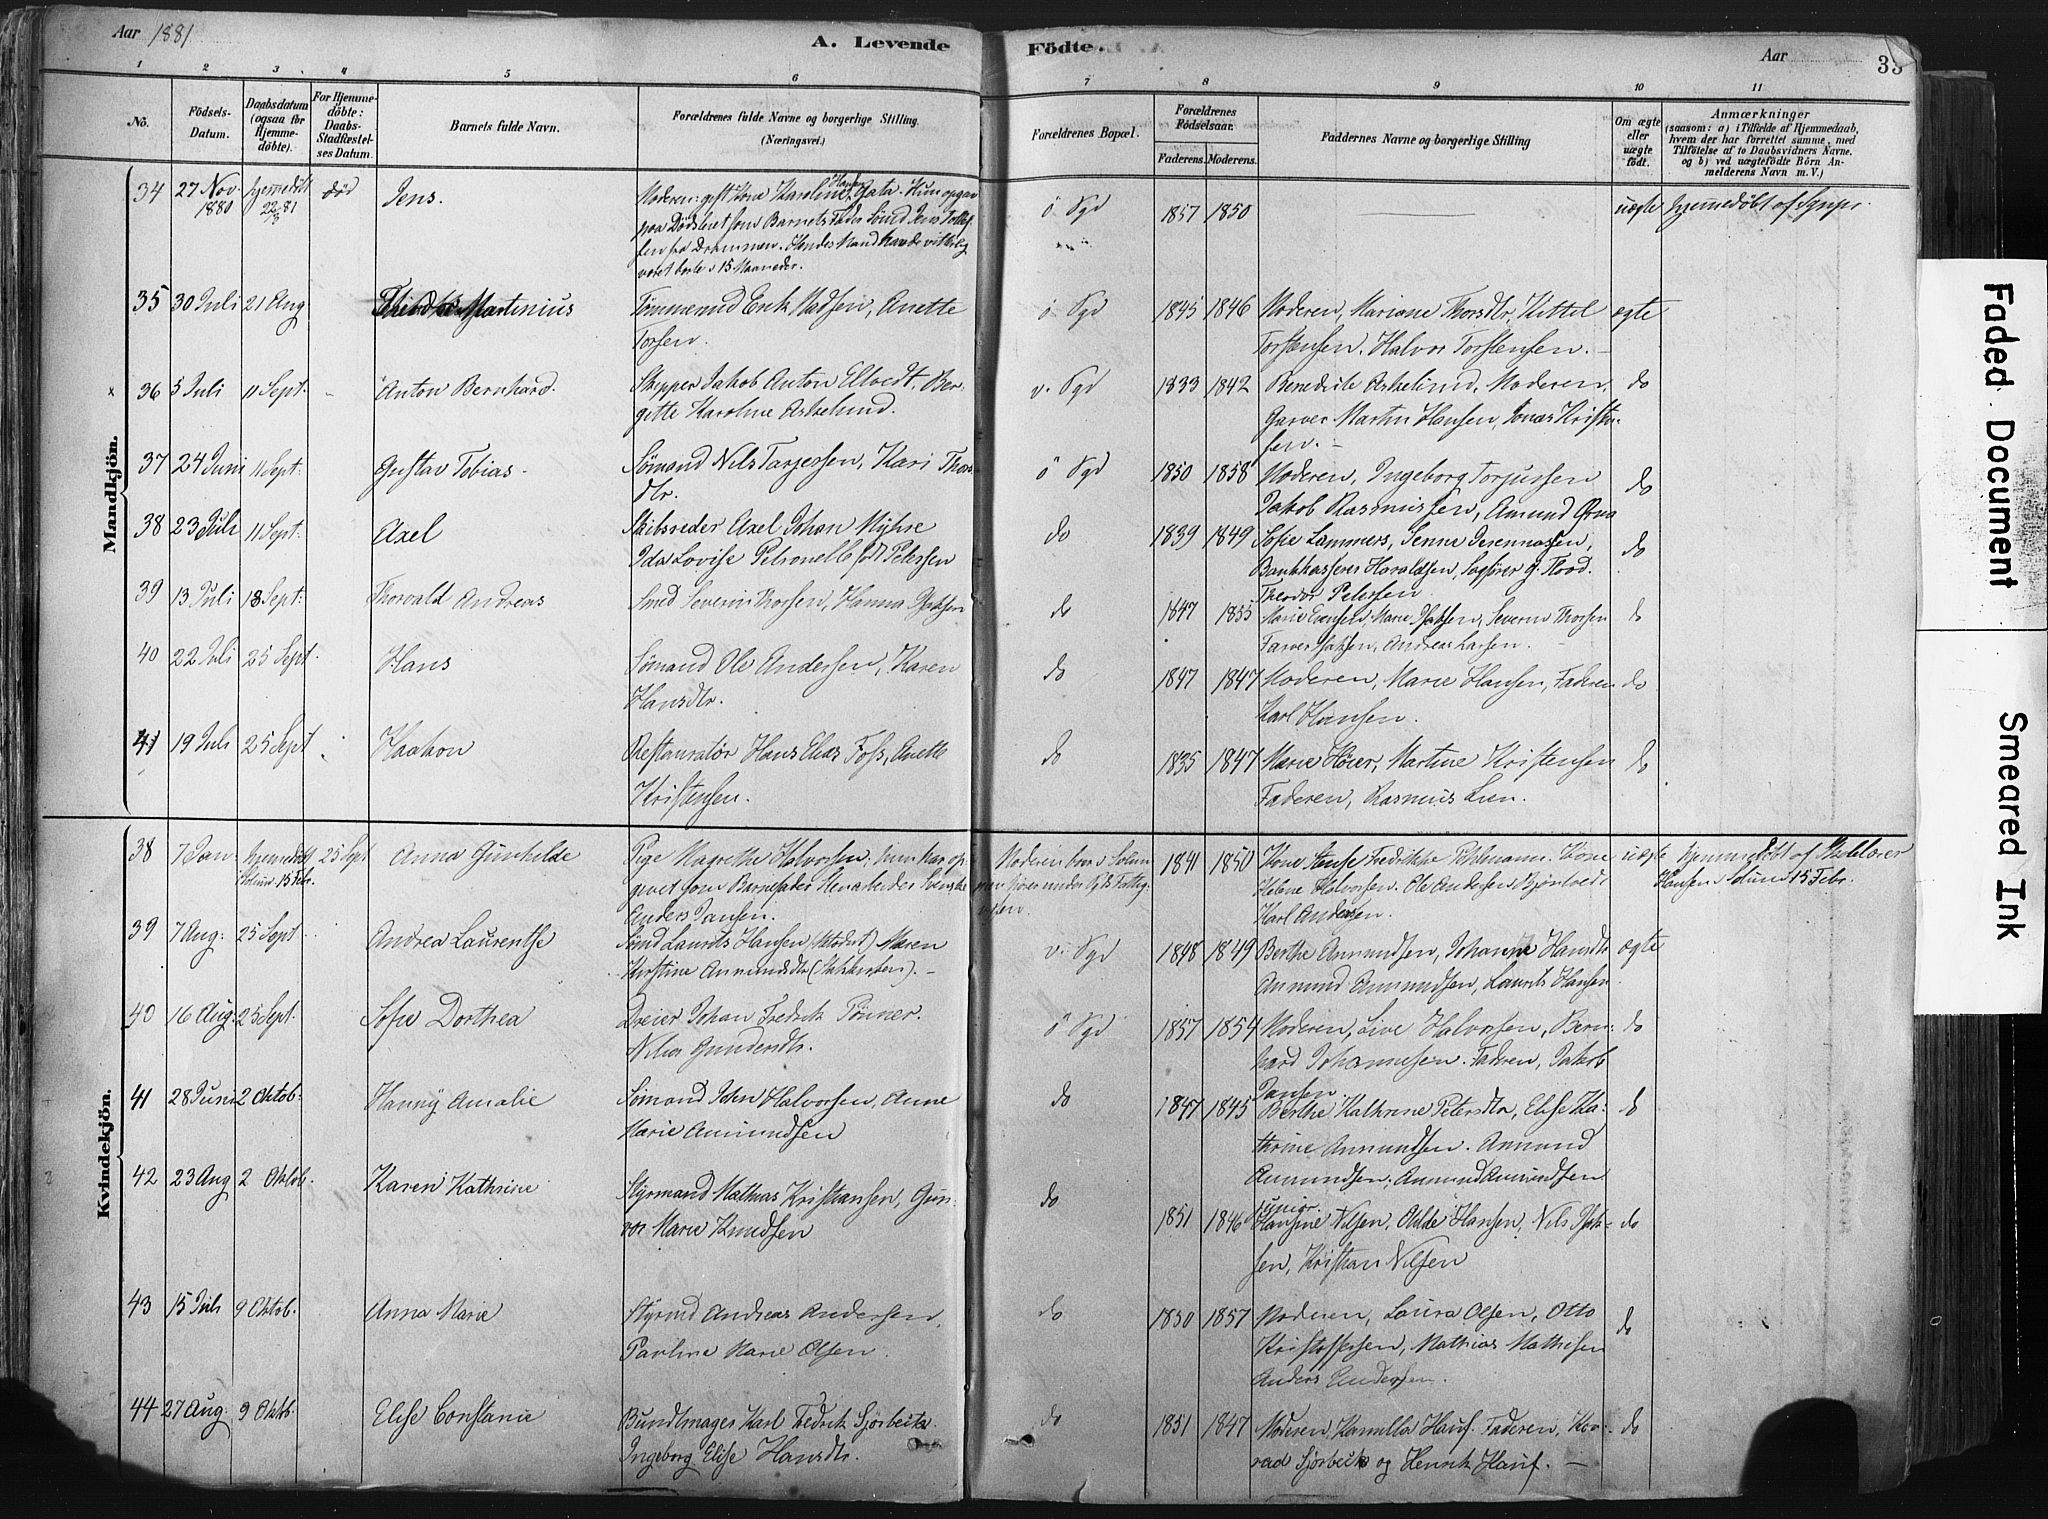 Aar 1881
A. Levende Födte.
Aar
33
1 2 3 4 5 6 7 8 9 10 11
No.
Födsels-Datum.
Daabsdatum (ogsaa for Hjemme-döbte).
For Hjemme-döbte: Daabs-Stadfæstel-ses Datum.
Barnets fulde Navn.
Forældrenes fulde Navne og borgerlige Stilling. (Næringsvei.)
Forældrenes Bopæl.
Forældrenes Födselsaar.
Faderens. Moderens.
Faddernes Navne og borgerlige Stilling
Om ægte eller uægte födt.
Anmærkninger
(saasom: a) i Tilfælde af Hjemmedaab, hvem der har forrettet samme, med Tilföielse af to Daabsvidners Navne. og b) ved uægtefödte Börn An-melderens Navn m. V.)
Mandkjön.
34 27 Nov. 1880 hjemmedøbt død Jens. Moderen: gift Kone Karoline Gata. Hun opgav
paa Dødsleiet som Barnets Fader Sømd Jens
sen fra Drammen. Hendes Mand havde
været borte i 15 Maaneder.
ö Sgd 1857 1850 uægte hjemmedøbt af
35 30 Juli 21 Aug Martinius Tømmermd Erik Madsen, Anette
Torsen.
ö Sgd 1845 1846 Moderen, Mariane Thorsdtr, Kittel
Torstensen. Halvor Torstensen. ægte
36 5 Juli 11 Sept. Anton Bernhard. Skipper Jakob Anton Elvedt, Ber-
gitte Karoline Askelund.
v. Sgd 1833 1842 Benedicte Askelund, Moderen,
Garver Martin Hansen, Jonas Kristen-
sen. do
37 24 Juni 11 Sept. Gustav Tobias. Sömand Nils Tarjersen, Kari Thors
dtr.
ö Sgd 1850 1858 Moderen, Ingeborg Torjussen
Jakob Rasmussen, Amund do
38 23 Juli 11 Sept. Axel Skibsreder Axel Johan Myhre
Ida Lovise Petronelle født Petersen
do 1839 1849 Sofie Lammers,
Haraldsen, Sagfører G. Flood.
Theodor Petersen do
39 13 Juli 18 Sept. Thorvald Andreas Smed Severin Thorsen, Hanna
do 1847 1855 Marie Evensen, Marie Severin Thorsen
Farver Andreas Larsen. do
40 22 Juli 25 Sept. Hans Sömand Ole Andersen, Karen
Hansdtr.
do 1847 1847 Moderen, Marie Hansen, Faderen
Karl Hansen. do
41 19 Juli 25 Sept Haakon Restauratör Hans Elias Foss, Anette
Kristensen.
do 1835 1847 Marie Høier, Martine Kristensen
Faderen, Rasmus Lien. do
Kvindekjön.
38 7 Jan hjemmedøbt 15 Febr. 25 Sept Anna Gunhilde Pige Magrethe Halvorsen, hun har op-
givet som Barnefader
Anders Jansen.
Moderen
1841 1850 Kone Fredrikke Kone
Helene Halvorsen. Ole Andersen
Karl Andersen. uægte hjemmedøbt af
Hansen i Solum 15 Febr.
39 7 Aug. 25 Sept Andrea Laurentse Sömd Laurits Hansen Maren
Kirstine Anmundsdtr
v. Sgd 1848 1849 Berthe Anmundsen, Johanne Hansdtr
Anmund Anmundsen, Laurits Hansen ægte
40 16 Aug. 25 Sept. Sofie Dorthea Dreier Johan Fredrik Tönner.
Gundersdtr.
ö Sgd 1857 1854 Moderen, Live Halvorsen, Bern-
hard Johannesen. Faderen, Jakob
Jansen. do
41 28 Juni 2 Oktob. Hanny Amalie Sömand John Halvorsen, Anne
Marie Anmundsen
do 1847 1845 Berthe Kathrine Petersdtr, Elise Ka-
thrine Anmundsen. Anmund
Anmundsen. Anmund Anmundsen
junior. do
42 23 Aug 2 Oktob. Karen Kathrine Styrmand Mathias Kristiansen, Gun-
vor Marie Knudsen
do 1851 1846 Hansine Nilsen, Hansen, Nils
sen, Kristian Nilsen do
43 15 Juli 9 Oktob. Anna Marie Styrmd Andreas Andersen,
Pauline Marie Olsen.
do 1850 1857 Moderen, Laura Olsen, Otto
Kristoffersen, Mathias Mathisen
Anders Andersen. do
44 27 Aug. 9 Oktob. Elise Constance Bundtmager Karl Fredrik Sjörbeck
Ingeborg Elise Hansdtr.
do 1851 1847 Moderen, Kamilla Hauf. Faderen, Kon-
rad Sjörbeck og Henrik Hauf. do
Faded Document
Smeared Ink